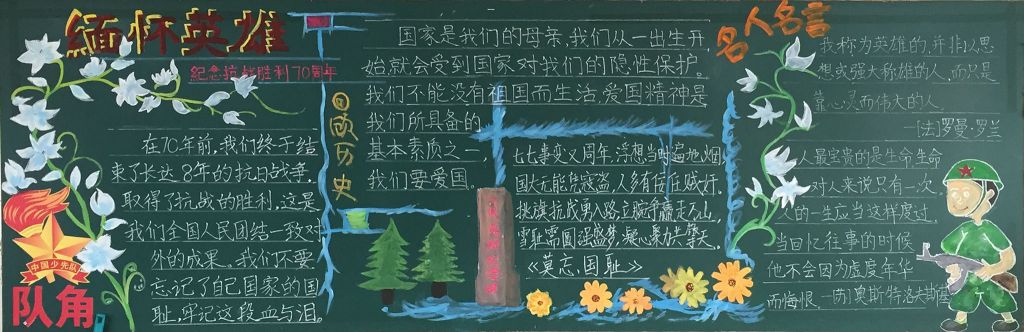 缅怀英雄
纪念抗战胜利70周年
在70年前,我们终于结
束了长达8年的抗日战争,
取得了抗战的胜利,这是
我们全国人民团结一致对
外的成果。我们不要
忘记了自己国家的国
耻,牢记这段血与泪。
中国少先队
队角
回顾历史
国家是我们的母亲,我们从一出生开
始就会受到国家对我们的隐性保护。
我们不能没有祖国而生活,爱国精神是
我们所具备的
基本素质之一,
我们要爱国。
七七事变又周年,浮想当时遍地烟
国大无能凭寇盗,人多有
挑旗抗战勇入路,立腕争赢走万山,
雪耻需圆强盛梦,凝心聚力共擎天。
《莫忘,国耻》
名人名言
我称为英雄的,并非以思
想或强大称雄的人,而只是
靠心灵而伟大的人
—[法]罗曼·罗兰
人最宝贵的是生命生命
对人来说只有一次
人的一生应当这样度过,
当回忆往事的时候
他不会因为虚度年华
而悔恨.—[苏]奥斯特洛夫斯基